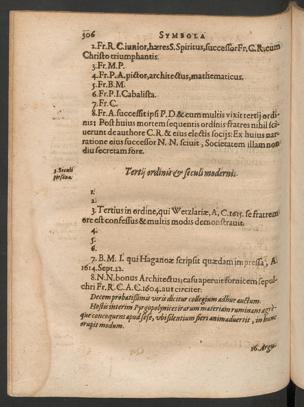 306 SYMBOLA
2. Fr. R. C. iunior, hæres S. Spiritus, successor Fr. C. R. cum
Christo triumphantis.
3. Fr. M. P.
4. Fr. P. A. pictor, architectus, mathematicus.
5. Fr. B. M.
6. Fr. P. I. Cabalista.
7. Fr. C.
8. Fr. A. successit ipsi P. D & cum multis vixit tertij ordi-
nis: Post huius mortem sequentis ordinis fratres nihil sci-
verunt de authore C. R. & eius electis socijs: Ex huius nar-
ratione eius successor N. N. scivit, Societatem illam non
diu secretam fore.
3. Seculi
persona.
Tertij ordinis & seculi moderni.
1.
2.
3. Tertius in ordine, qui Wetzlariæ, A. C. 1615. se fratrem
ore est confessus & multis modis demonstravit.
4.
5.
6.
7. B. M. I. qui Haganoæ scripsit quædam impressa, A.
1614. Sept. 22.
8. N. N. bonus Architectus, casu aperuit fornicem sepul-
chri Fr. R. C. A. C. 1604. aut circiter:
Decem probatissimis viris dicitur collegium adhuc auctum.
Hostis interim Pyrgopolynices irarum materiam ruminans ægrè-
que concoquens apud sese, ubi silentium fieri animadvertit, in hunc
erupit modum.
16. Argu-